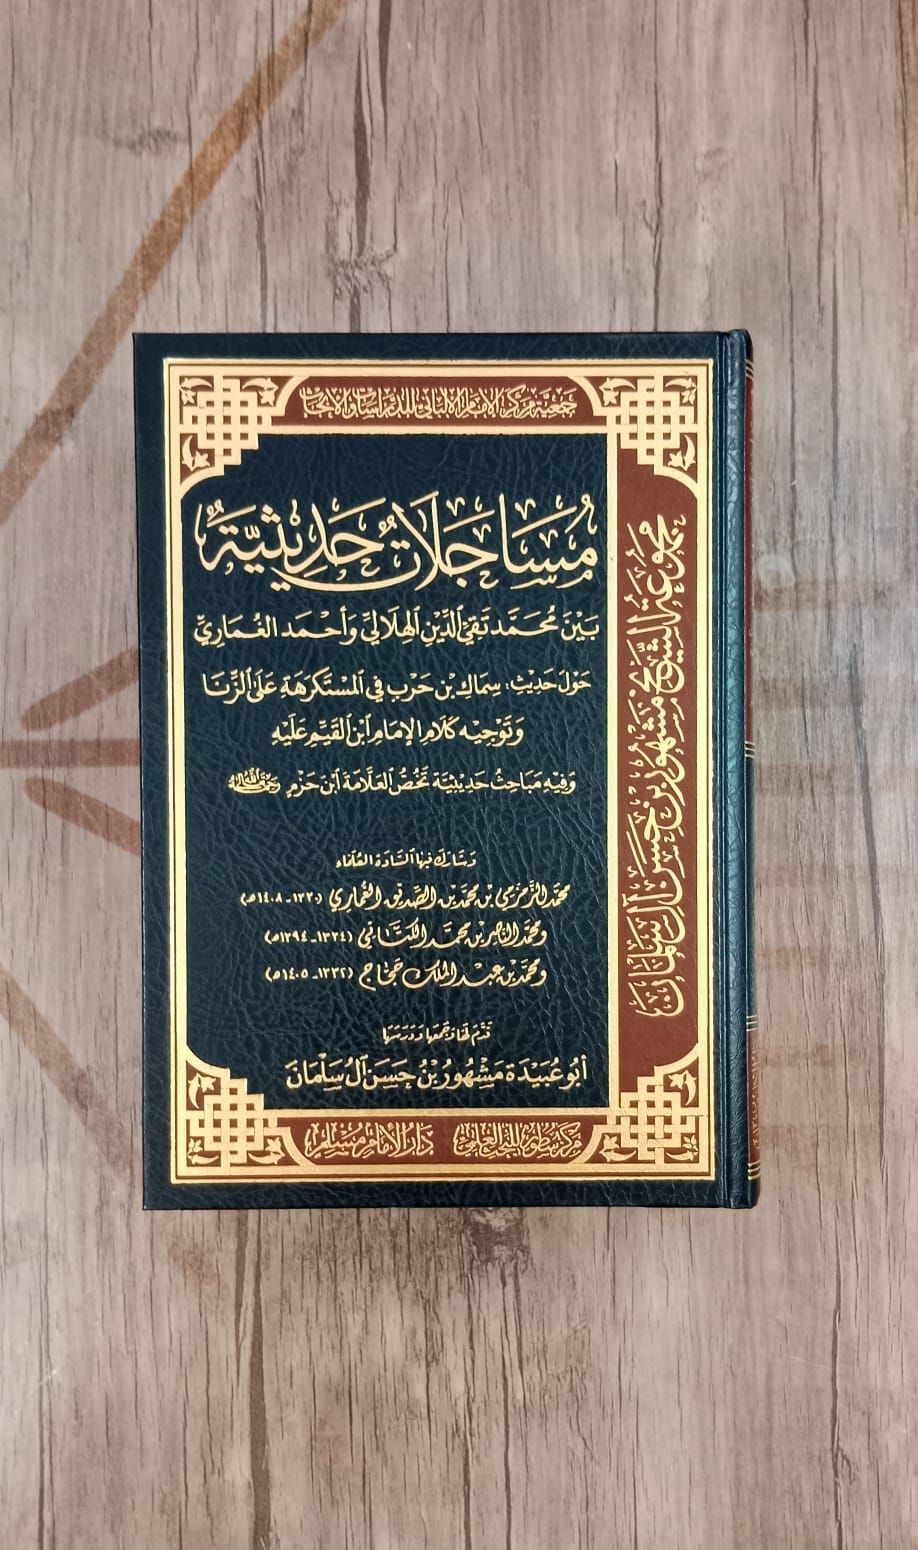 جمعية مركز الإمام الألباني للدراسات والأبحاث
مُسَاجَلَاتٌ حَدِيثِيَّةٌ
بَيْنَ مُحَمَّد تَقِيِّ الدِّينِ الهِلَالِيِّ وَأَحْمَد الغُمَارِيِّ
حَوْلَ حَدِيثِ: سِمَاكِ بْنِ حَرْبٍ فِي المُسْتَكْرَهَةِ عَلَى الزِّنَا
وَتَوْجِيهِ كَلَامِ الإِمَامِ ابْنِ القَيِّمِ عَلَيْهِ
وَفِيهِ مَبَاحِثُ حَدِيثِيَّة تَخُصُّ العَلَّامَةَ ابْنَ حَزْمٍ رَحِمَهُ اللَّهُ
وَشَارَكَ فِيهَا السَّادَة العُلَمَاء
محمد الزمزمي بن محمد بن الصديق الغماري (١٣٣٠-١٤٠٨هـ)
ومحمد الناصر بن محمد الكتاني (١٣٣٤-١٣٩٤هـ)
ومحمد بن عبد الملك حجاج (١٣٣٢-١٤٠٥هـ)
قَدَّمَ لَهَا وَجَمَعَهَا وَدَرَسَهَا
أَبُو عُبَيْدَة مَشْهُور بْنُ حَسَن آل سَلْمَان
دار الإمام مسلم
مجموعة الشيخ مشهور بن حسن آل سلمان